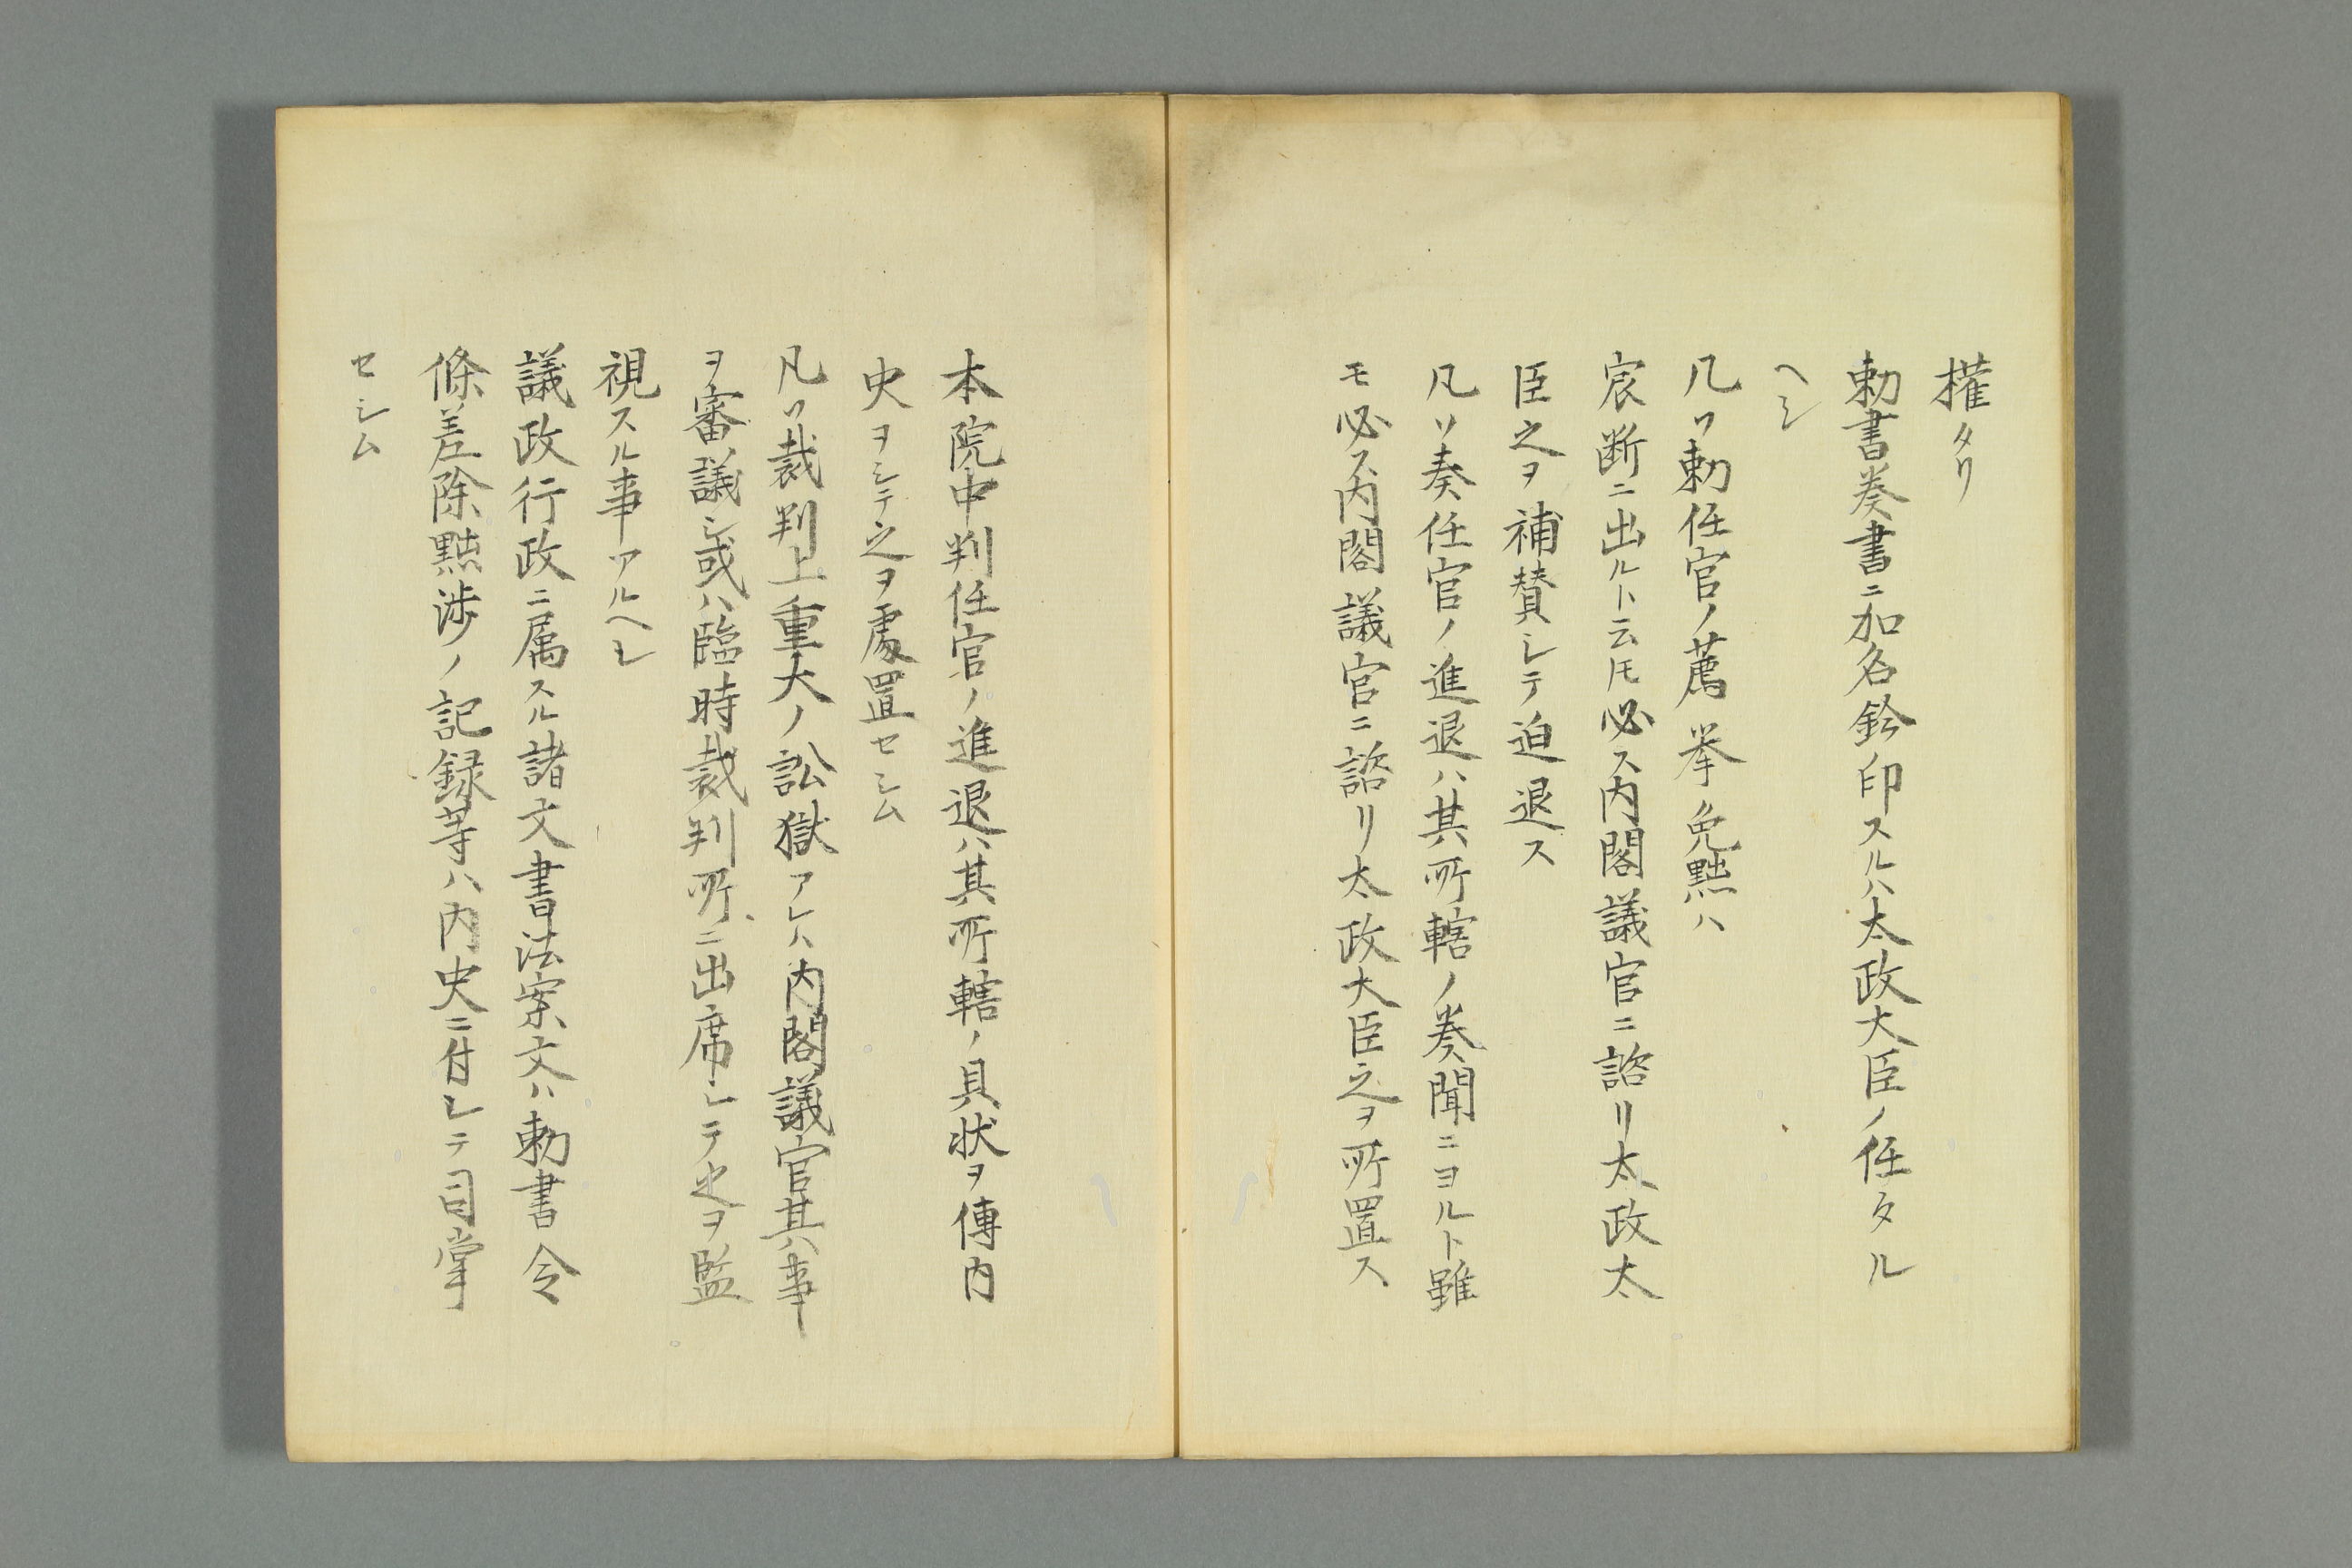 權タリ
勅書奏書ニ加名鈐印スルハ太政大臣ノ任タル
ヘシ
凡ソ勅任官ノ薦挙免黜ハ
宸断ニ出ルト云𪜈必ス内閣議官ニ諮リ太政大
臣之ヲ補賛シテ迫退ス
凡ソ奏任官ノ進退ハ其所轄ノ奏聞ニヨルト雖
モ必ス内閣議官ニ諮リ太政大臣之ヲ所置ス
本院中判任官ノ進退ハ其所轄ノ具状ヲ傳内
史ヲシテ之ヲ處置セシム
凡ソ裁判上重大ノ訟獄アレハ内閣議官其事
ヲ審議シ或ハ臨時裁判所ニ出席シテ之ヲ監
視スル事アルヘシ
議政行政ニ属スル諸文書法案文ハ勅書令
條差除黜渉ノ記録等ハ内史ニ付シテ目掌
セシム